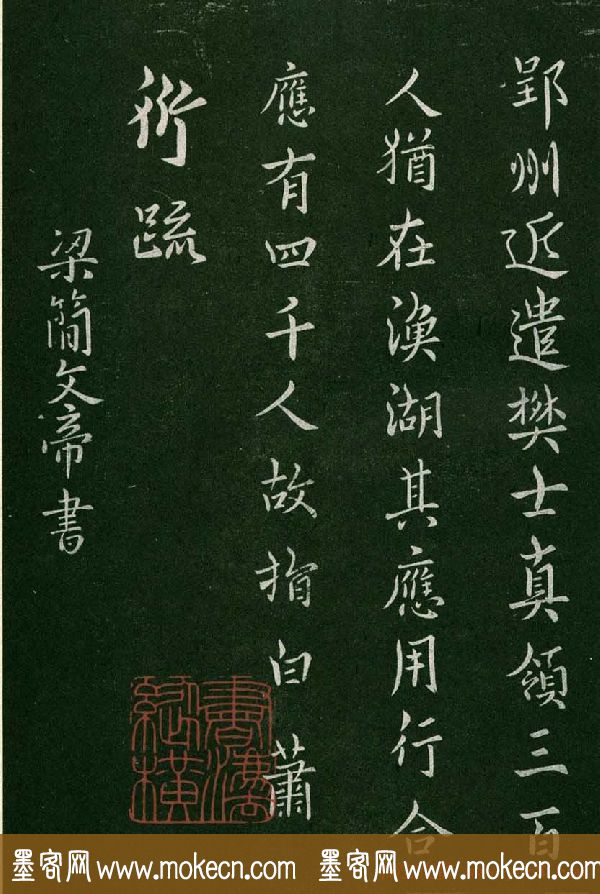 郢州近遣樊士真領三百
人猶在湖其應用行合
應有四千人故指白蕭
衍疏
梁簡文帝書
墨客网 www.mokecn.com 墨客网 www.mokecn.com